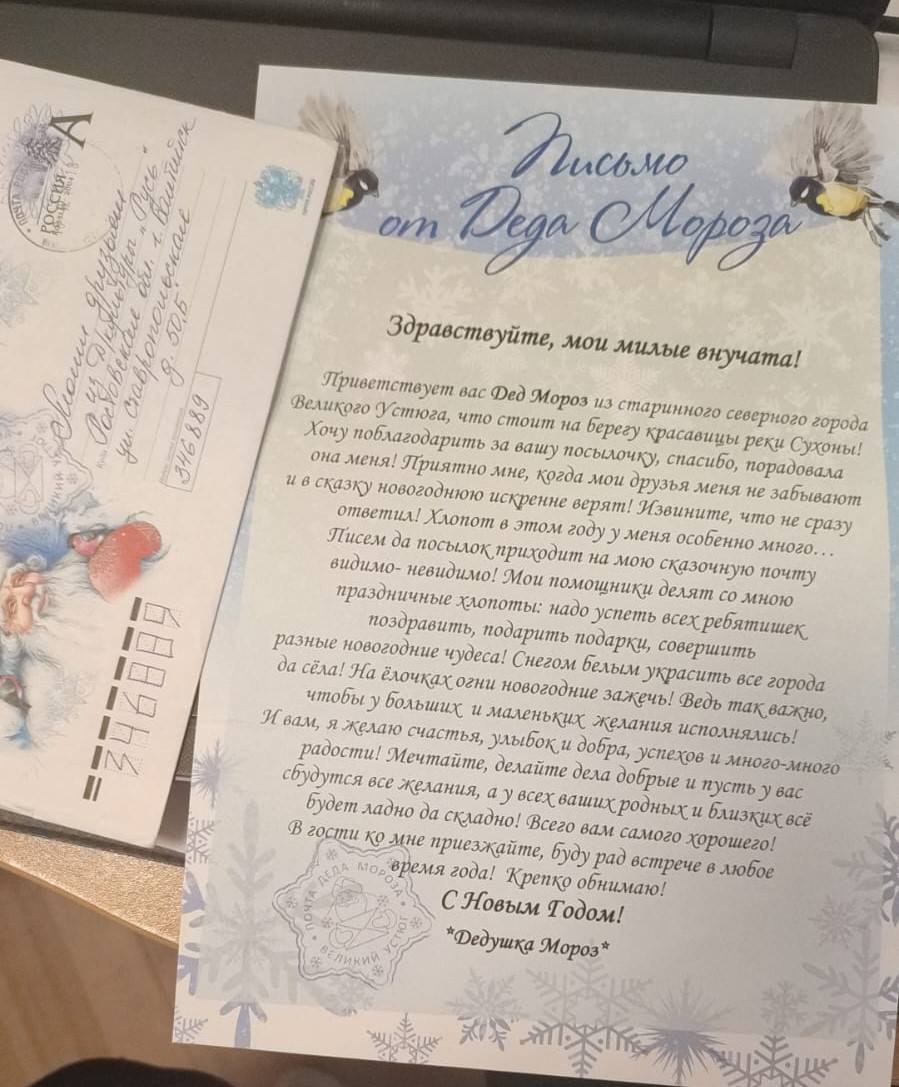 Письмо
от Деда Мороза
Здравствуйте, мои милые внучата!
Приветствует вас Дед Мороз из старинного северного города
Великого Устюга, что стоит на берегу красавицы реки Сухоны!
Хочу поблагодарить за вашу посылочку, спасибо, порадовала
она меня! Приятно мне, когда мои друзья меня не забывают
и в сказку новогоднюю искренне верят! Извините, что не сразу
ответил! Хлопот в этом году у меня особенно много...
Писем да посылок приходит на мою сказочную почту
видимо- невидимо! Мои помощники делят со мною
праздничные хлопоты: надо успеть всех ребятишек
поздравить, подарить подарки, совершить
разные новогодние чудеса! Снегом белым украсить все города
да сёла! На ёлочках огни новогодние зажечь! Ведь так важно,
чтобы у больших и маленьких желания исполнялись!
И вам, я желаю счастья, улыбок и добра, успехов и много-много
радости! Мечтайте, делайте дела добрые и пусть у вас
сбудутся все желания, а у всех ваших родных и близких всё
будет ладно да складно! Всего вам самого хорошего!
В гости ко мне приезжайте, буду рад встрече в любое
время года! Крепко обнимаю!
С Новым Годом!
*Дедушка Мороз*
ПОЧТА ДЕДА МОРОЗА
ВЕЛИКИЙ УСТЮГ
А
РОССИЯ
Моим друзьям
из "Русь"
Ростовская обл. г.
ул. Ставропольская
д. 50.Б
346889
346889